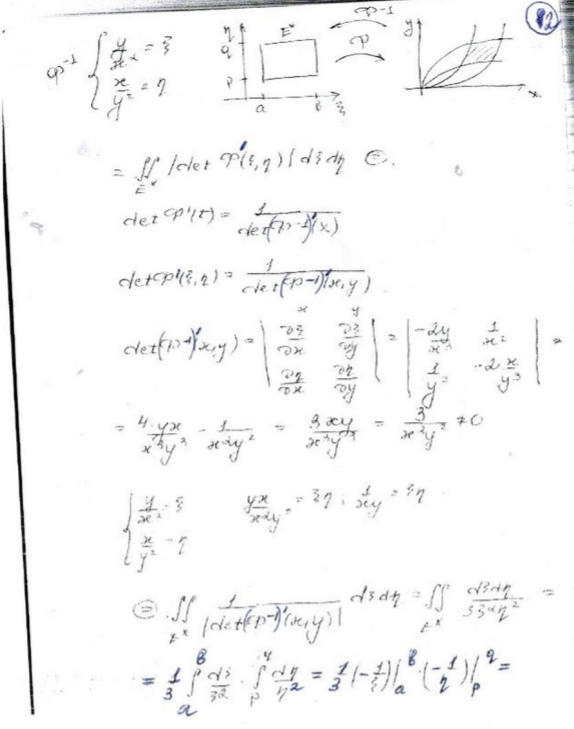 82
φ⁻¹ { y/x² = ξ
x/y² = η
η q E* p a b ξ
φ⁻¹ φ
y x
= ∬_{E*} |det φ'(ξ,η)| dξdη ⊜.
det φ'(t) = 1/det(φ⁻¹)'(x)
det φ'(ξ,η) = 1/det(φ⁻¹)'(x,y)
x y
det(φ⁻¹)'(x,y) = | ∂ξ/∂x ∂ξ/∂y ; ∂η/∂x ∂η/∂y | = | -2y/x³ 1/x² ; 1/y² -2x/y³ | =
= 4·yx/x³y³ - 1/x²y² = 3xy/x³y³ = 3/x²y² ≠ 0
{ y/x² = ξ yx/x²y² = ξη ; 1/xy = ξη
x/y² = η
⊜ ∬_{E*} 1/|det(φ⁻¹)'(x,y)| dξdη = ∬_{E*} dξdη/3ξ²η² =
= 1/3 ∫_a^b dξ/ξ² · ∫_p^q dη/η² = 1/3 (-1/ξ)|_a^b · (-1/η)|_p^q =